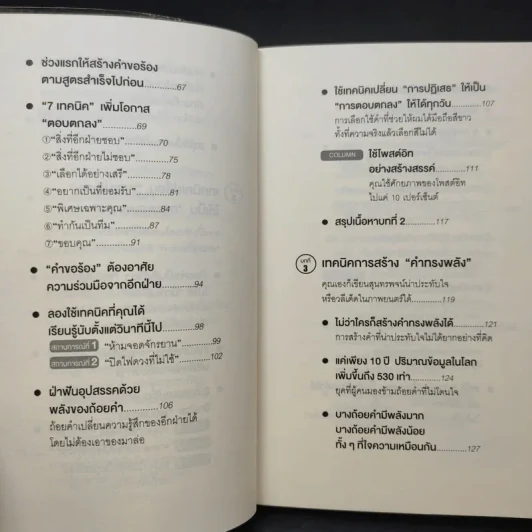 • ช่วงแรกให้สร้างคำขอร้อง
ตามสูตรสำเร็จไปก่อน..............67
• “7 เทคนิค” เพิ่มโอกาส
“ตอบตกลง”..............69
①“สิ่งที่อีกฝ่ายชอบ”..............70
②“สิ่งที่อีกฝ่ายไม่ชอบ”..............75
③“เลือกได้อย่างเสรี”..............78
④“อยากเป็นที่ยอมรับ”..............81
⑤“พิเศษเฉพาะคุณ”..............84
⑥“ทำกันเป็นทีม”..............87
⑦“ขอบคุณ”..............91
• “คำขอร้อง” ต้องอาศัย
ความร่วมมือจากอีกฝ่าย..............94
• ลองใช้เทคนิคที่คุณได้
เรียนรู้นับตั้งแต่วินาทีนี้ไป..............98
สถานการณ์ที่ 1 “ห้ามจอดจักรยาน”..............99
สถานการณ์ที่ 2 “ปิดไฟดวงที่ไม่ใช้”..............102
• ฝ่าฟันอุปสรรคด้วย
พลังของถ้อยคำ..............106
ถ้อยคำเปลี่ยนความรู้สึกของอีกฝ่ายได้
โดยไม่ต้องเอาของมาล่อ
• ใช้เทคนิคเปลี่ยน “การปฏิเสธ” ให้เป็น
“การตอบตกลง” ได้ทุกวัน..............107
การเลือกใช้คำที่ช่วยให้ผมได้มือถือสีขาว
ทั้งที่ความจริงแล้วเลือกสีไม่ได้
COLUMN ใช้โพสต์อิท
อย่างสร้างสรรค์..............111
คุณใช้ศักยภาพของโพสต์อิท
ไปแค่ 10 เปอร์เซ็นต์
• สรุปเนื้อหาบทที่ 2..............117
บทที่ 3 เทคนิคการสร้าง “คำทรงพลัง”
คุณเองก็เขียนสุนทรพจน์น่าประทับใจ
หรือวลีเด็ดในภาพยนตร์ได้..............119
• ไม่ว่าใครก็สร้างคำทรงพลังได้..............121
การสร้างคำที่น่าประทับใจไม่ได้ยากอย่างที่คิด
• แค่เพียง 10 ปี ปริมาณข้อมูลในโลก
เพิ่มขึ้นถึง 530 เท่า..............124
ยุคที่ผู้คนมองข้ามถ้อยคำที่ไม่โดนใจ
• บางถ้อยคำมีพลังมาก
บางถ้อยคำมีพลังน้อย
ทั้ง ๆ ที่ใจความเหมือนกัน..............127